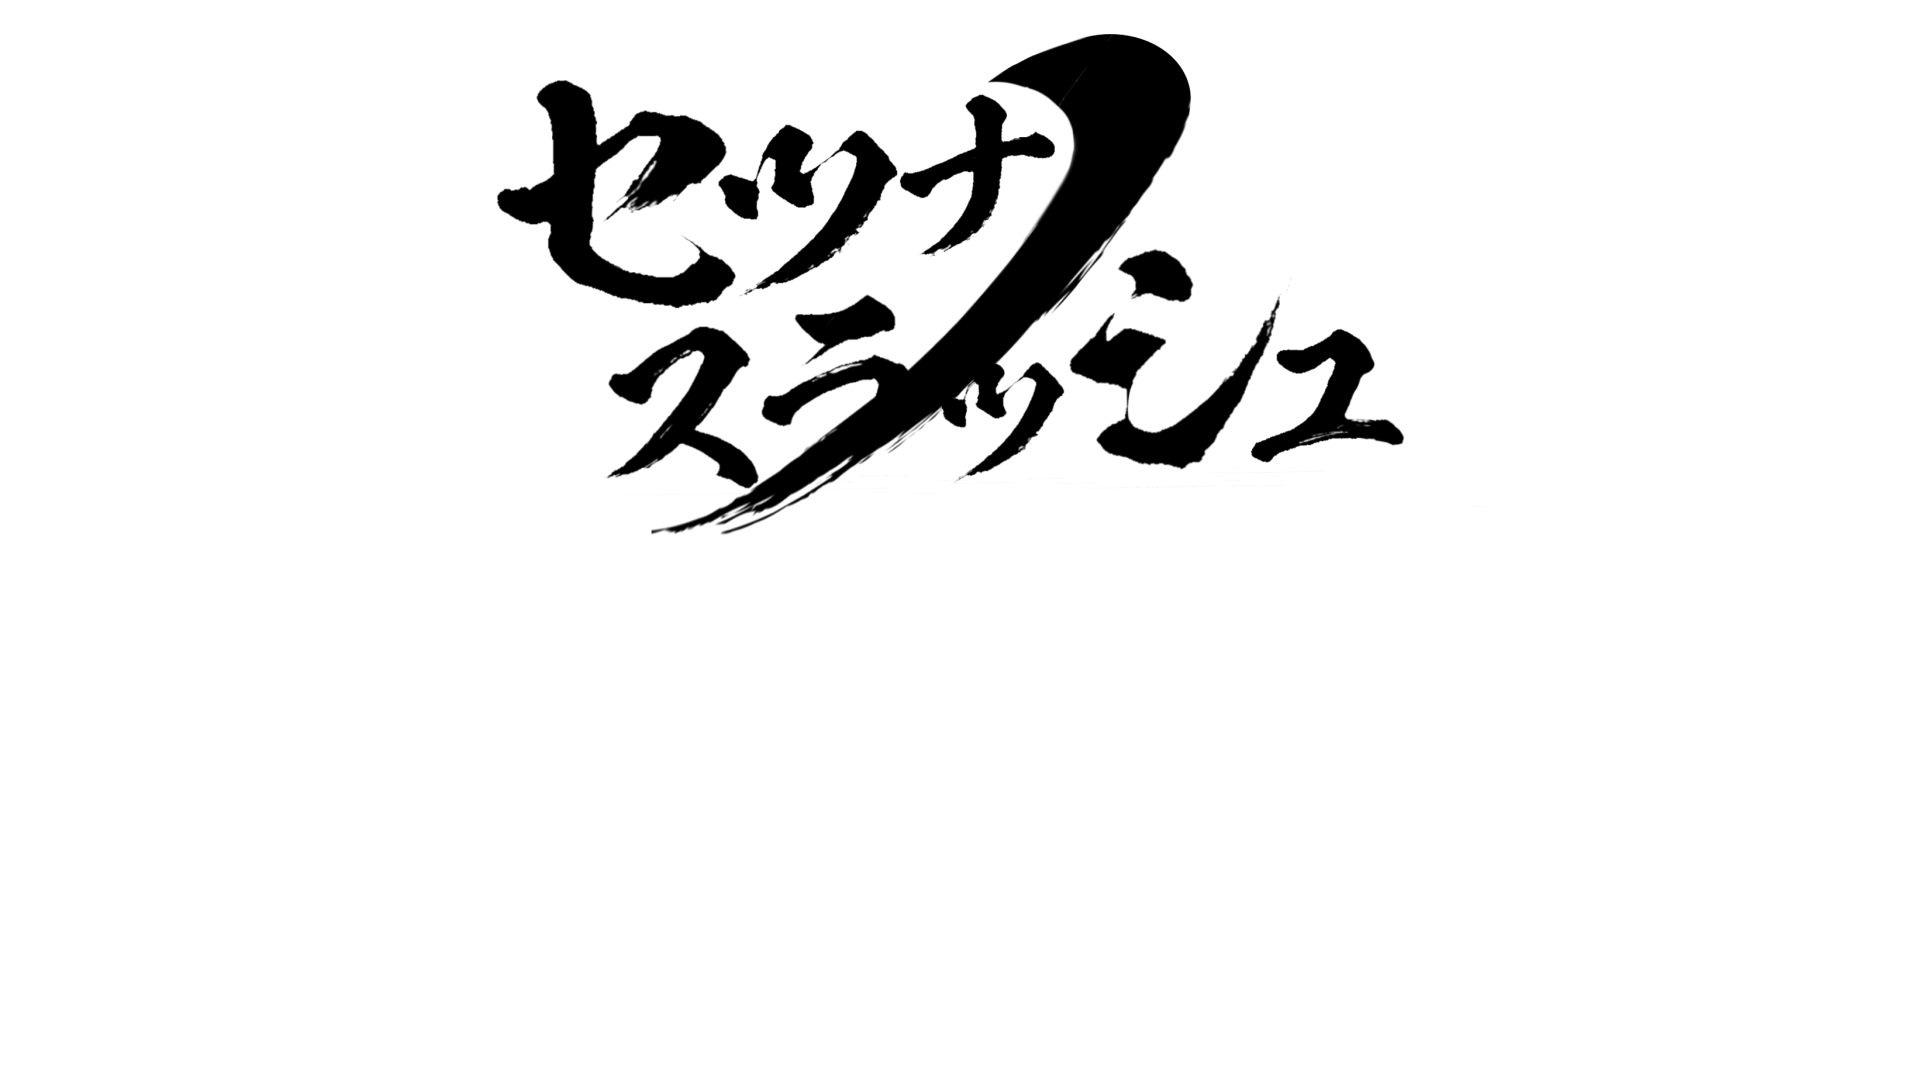 セツナ
スラッシュ